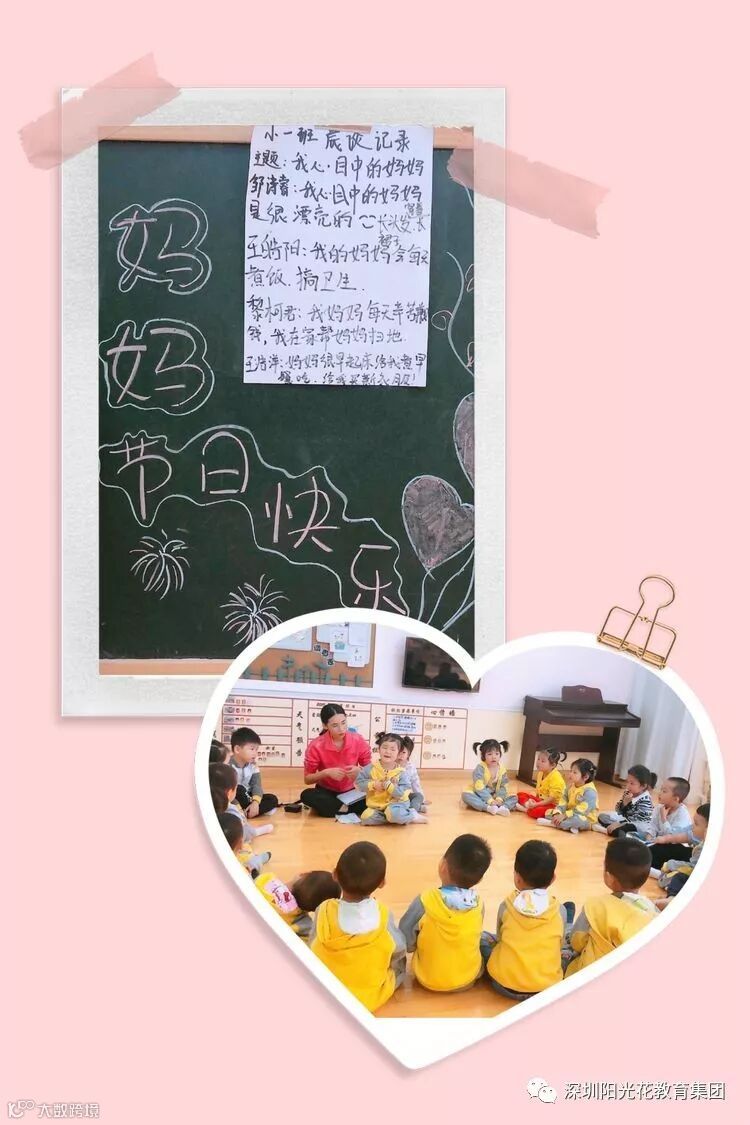 小一班 晨谈记录
主题：我心目中的妈妈
邹诗睿：我心目中的妈妈
是很漂亮的 长头发
王皓阳：我的妈妈会每天
煮饭、搞卫生.
黎柯君：我妈妈每天辛苦赚
钱，我在家帮妈妈扫地.
妈妈很早起床给我煮早
餐吃、给我买新衣服！
妈
妈
节日快乐
天气预告
公
心情墙
深圳阳光花教育集团
大数跨境